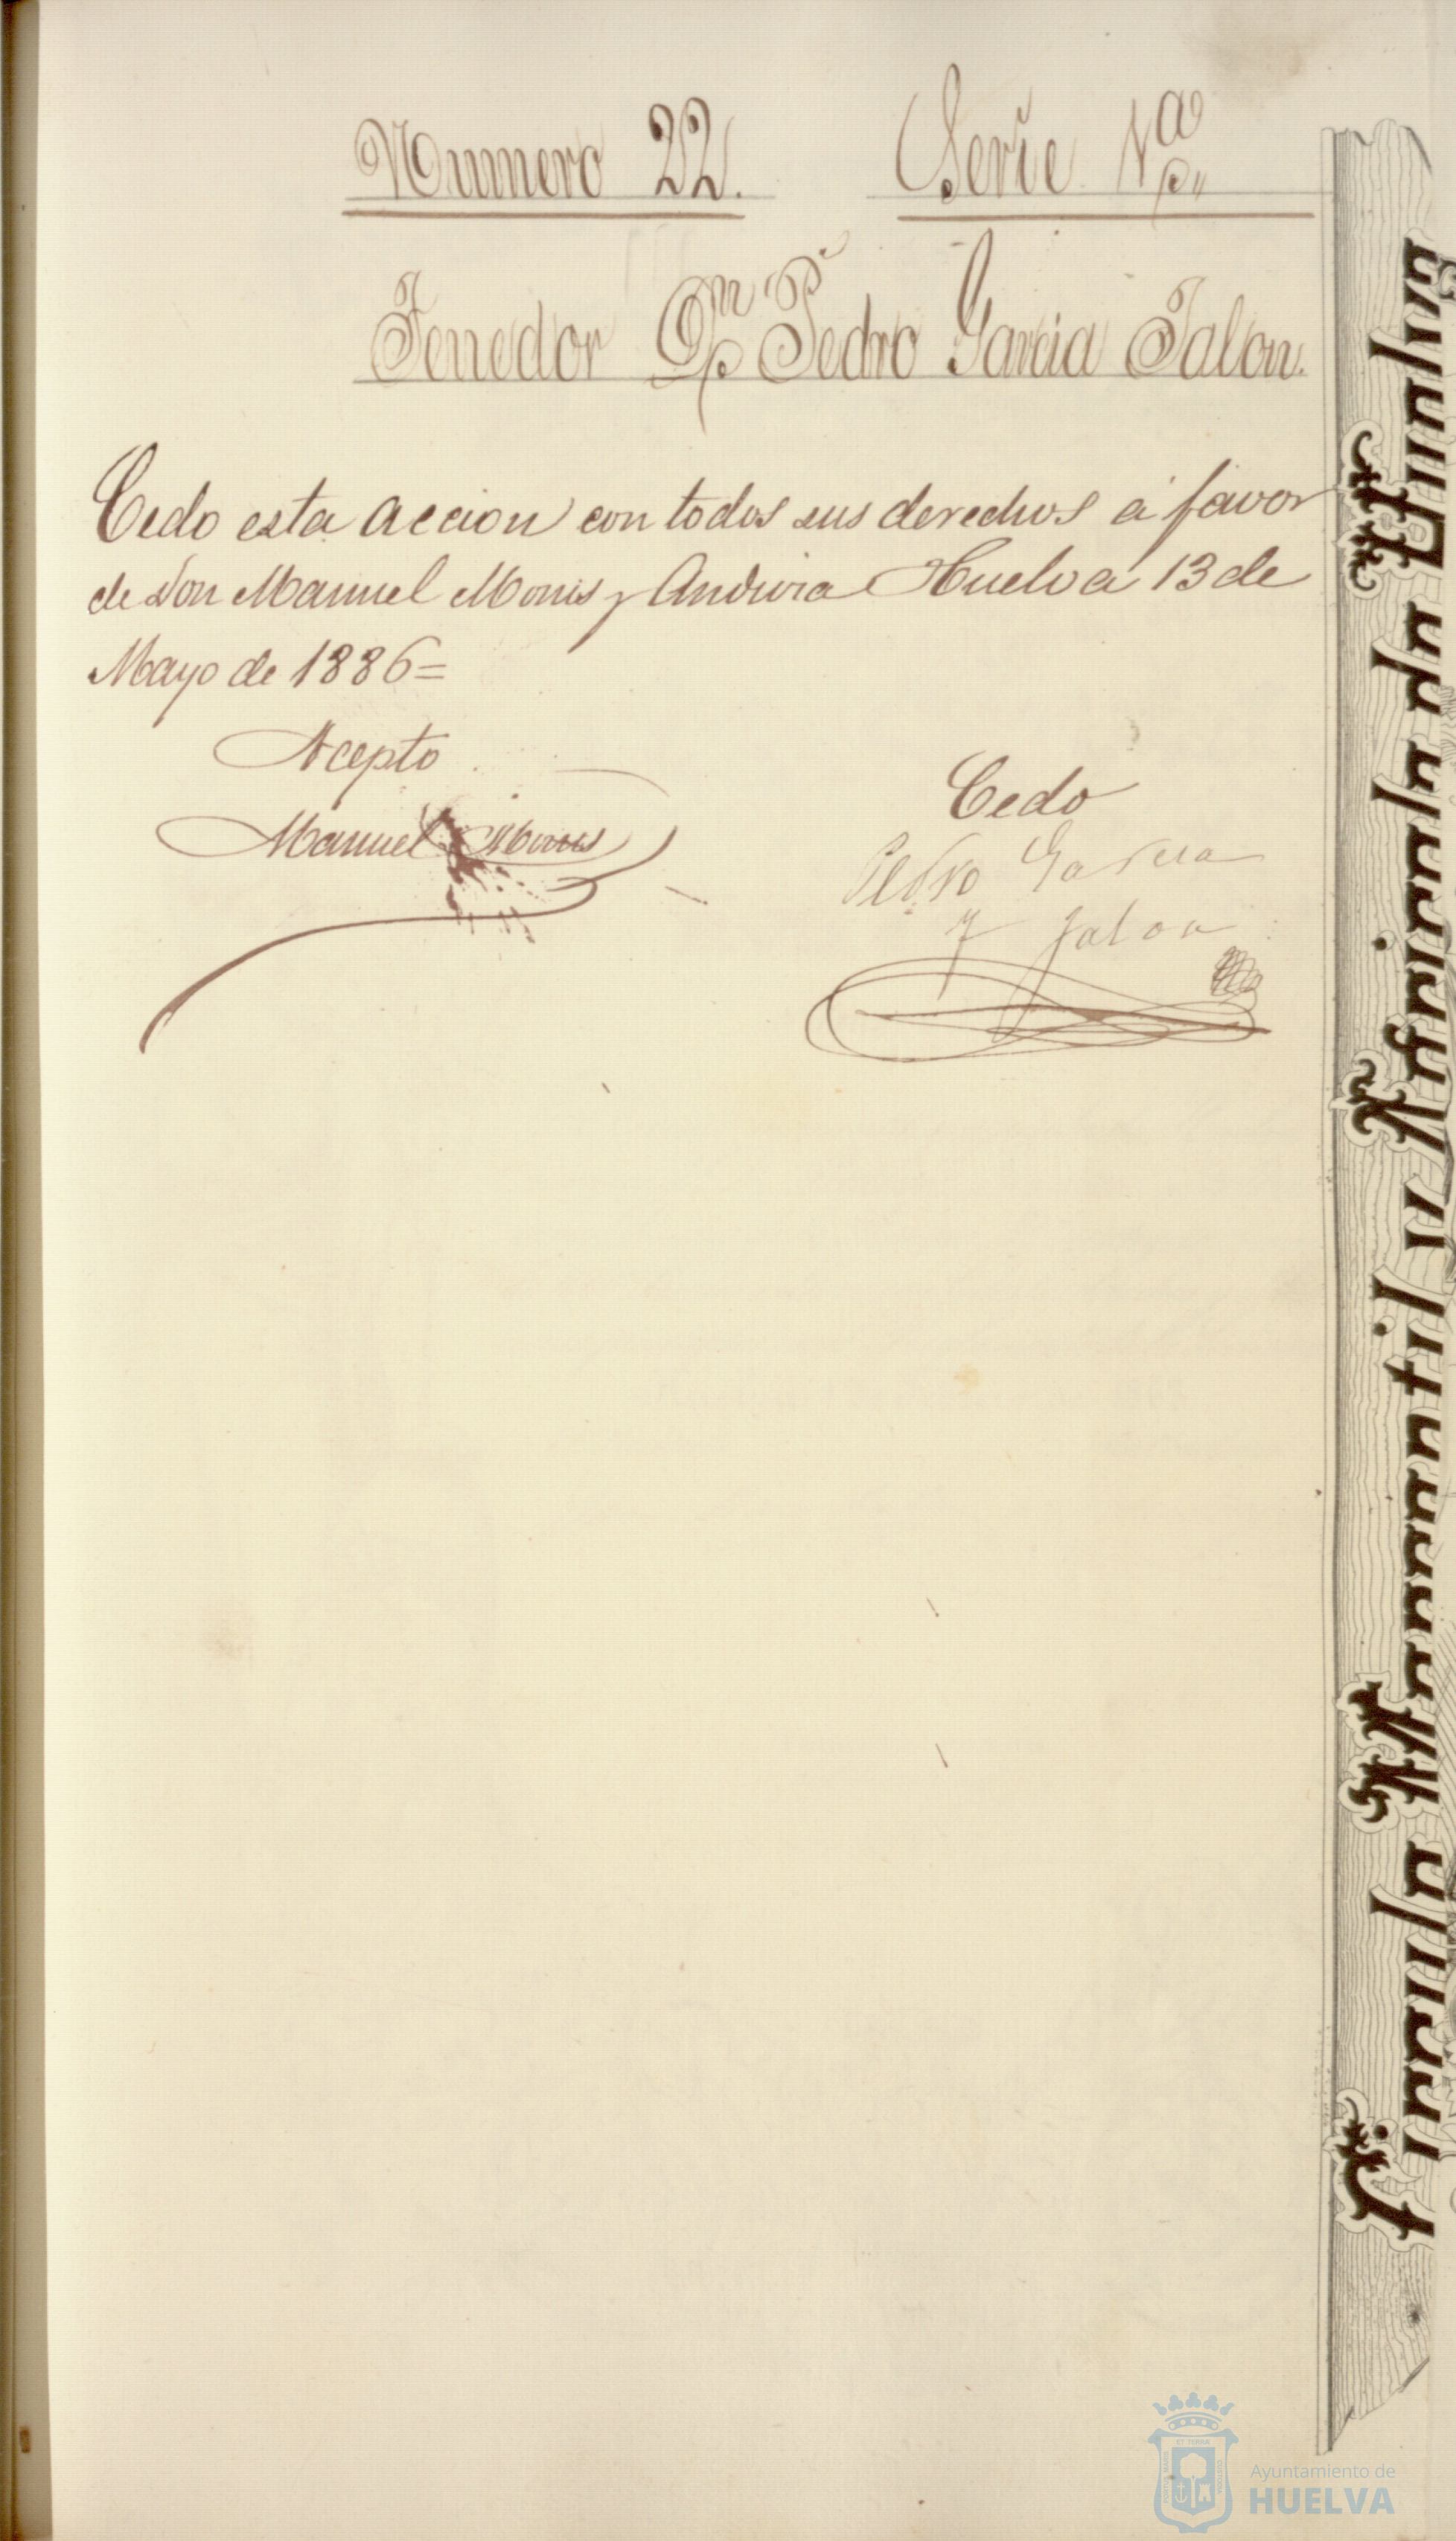 Numero 22. Serie 1ª
Tenedor Dn Pedro Garcia Jalon.
Cedo esta accion con todos sus derechos á favor
de Don Manuel Monis y Anduvia Huelva 13 de
Mayo de 1886=
Acepto
Manuel Monis
Cedo
Pedro Garcia
y Jalon
Circulo Mercantil y Agricola de Huelva
Ayuntamiento de
HUELVA